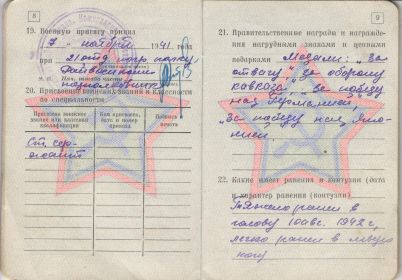 8
19. Военную присягу принял
7 - ноября 1941 года
при 21 отд. погр. полку,
20. Присвоение воинских званий и классности
по специальности:
Присвоено воинское
звание или классная
квалификация
Кем присвоено,
дата и номер
приказа
Подпись
печать
Ст. сер-
жант
9
21. Правительственные награды и награжде-
ния нагрудными знаками и ценными
подарками Медали: „За
отвагу", „за оборону
кавказа", „За победу
над Германией",
„За победу над Япо-
нией.
22. Какие имеет ранения и контузии (дата
и характер ранения (контузии)
Тяжело ранен в
голову 10 авг. 1942 г,
легко ранен в левую
ногу